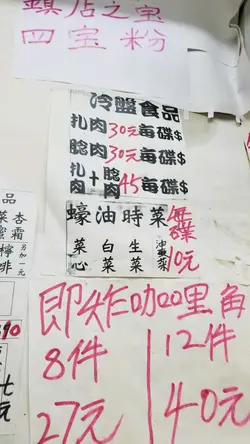 鎮店之宝
四宝粉
冷盤食品
扎肉30元每碟$
腍肉30元每碟$
扎肉+腍肉45每碟$
蠔油時菜
菜心 白菜 生菜 油麥菜 10元
即炸咖哩角
8件 12件
27元 40元
品
另加一元